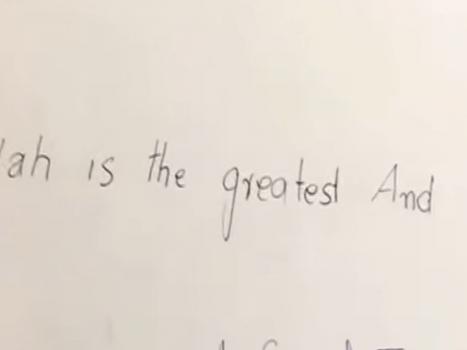 lah is the greatest And